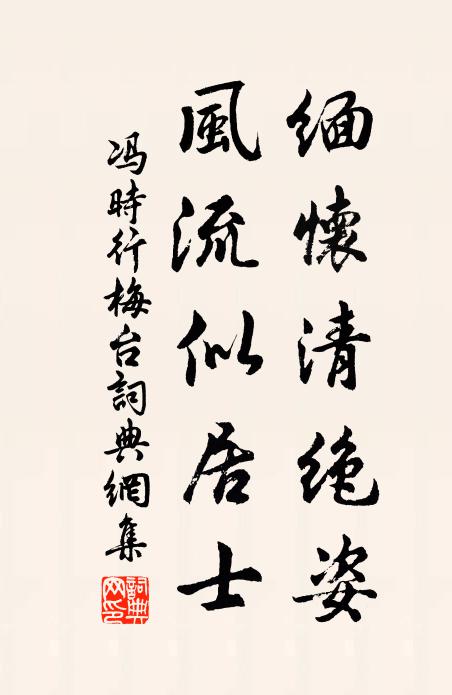 緬懷清絶姿
風流似居士
冯時行梅台詞典網集
詞典网印